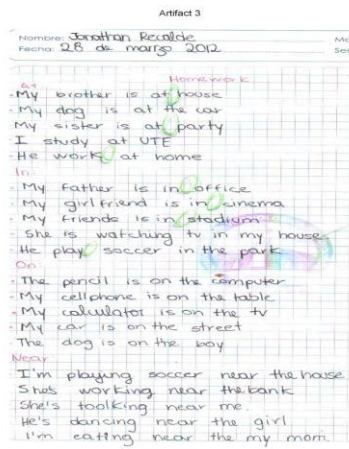 Artifact 3
Nombre: Jonathan Recalde
Fecha: 28 de marzo 2012
Homework
At
- My brother is at house
- My dog is at the car
My sister is at party
I study at UTE
- He work at home
In:
- My father is in office
- My girlfriend is in cinema
- My friends is in stadium
- She is watching tv in my house
- He play soccer in the park
On:
- The pencil is on the computer
- My cellphone is on the table
- My calculator is on the tv
- My car is on the street
- The dog is on the boy
Near
I'm playing soccer near the house
She's working near the bank
She's toolking near me.
He's dancing near the girl
I'm eating near the my mom